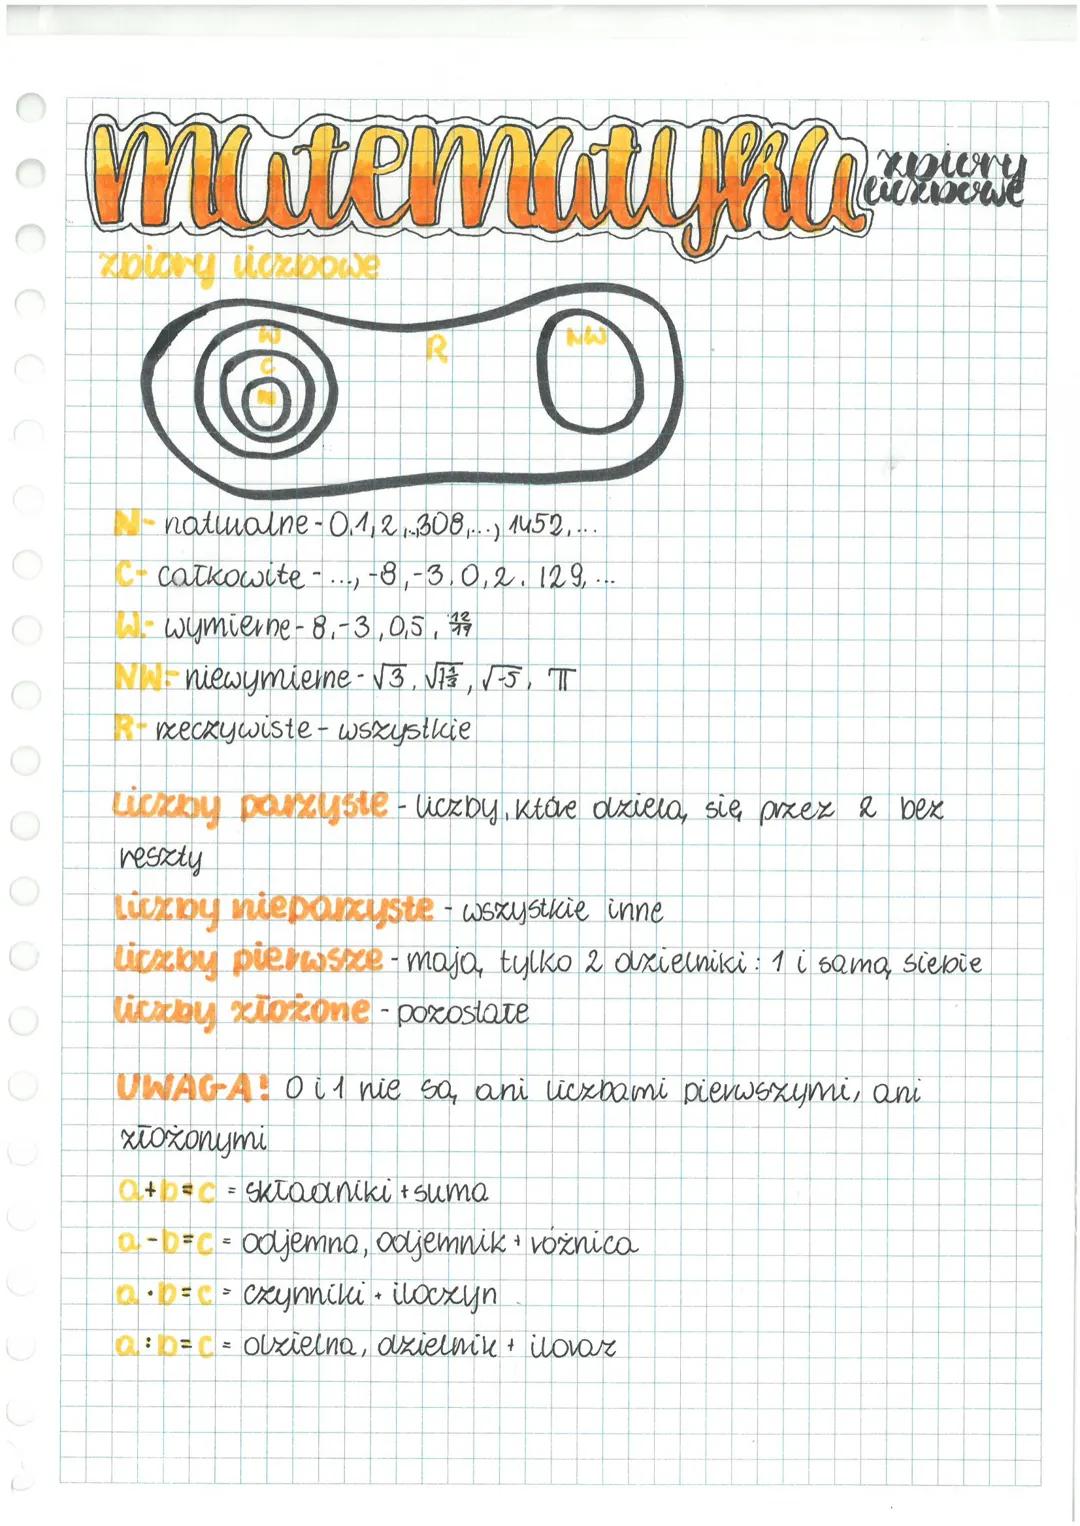 matematyka zbiory liczbowe
zbiory liczbowe
W
C
N
R
NW
N- naturalne - 0,1,2,...308,..., 1452,...
C- całkowite - ..., -8, -3, 0, 2, 129, ...
W- wymierne - 8, -3, 0,5, 12/19
NW- niewymierne - √3, √7⅓, √-5, π
R- rzeczywiste - wszystkie
liczby parzyste - liczby, które dzielą się przez 2 bez
reszty
liczby nieparzyste - wszystkie inne
liczby pierwsze - mają tylko 2 dzielniki: 1 i samą siebie
liczby złożone - pozostałe
UWAGA! 0 i 1 nie są ani liczbami pierwszymi, ani
złożonymi
a+b=c = składniki + suma
a-b=c = odjemna, odjemnik + różnica
a·b=c = czynniki + iloczyn
a:b=c = dzielna, dzielnik + iloraz